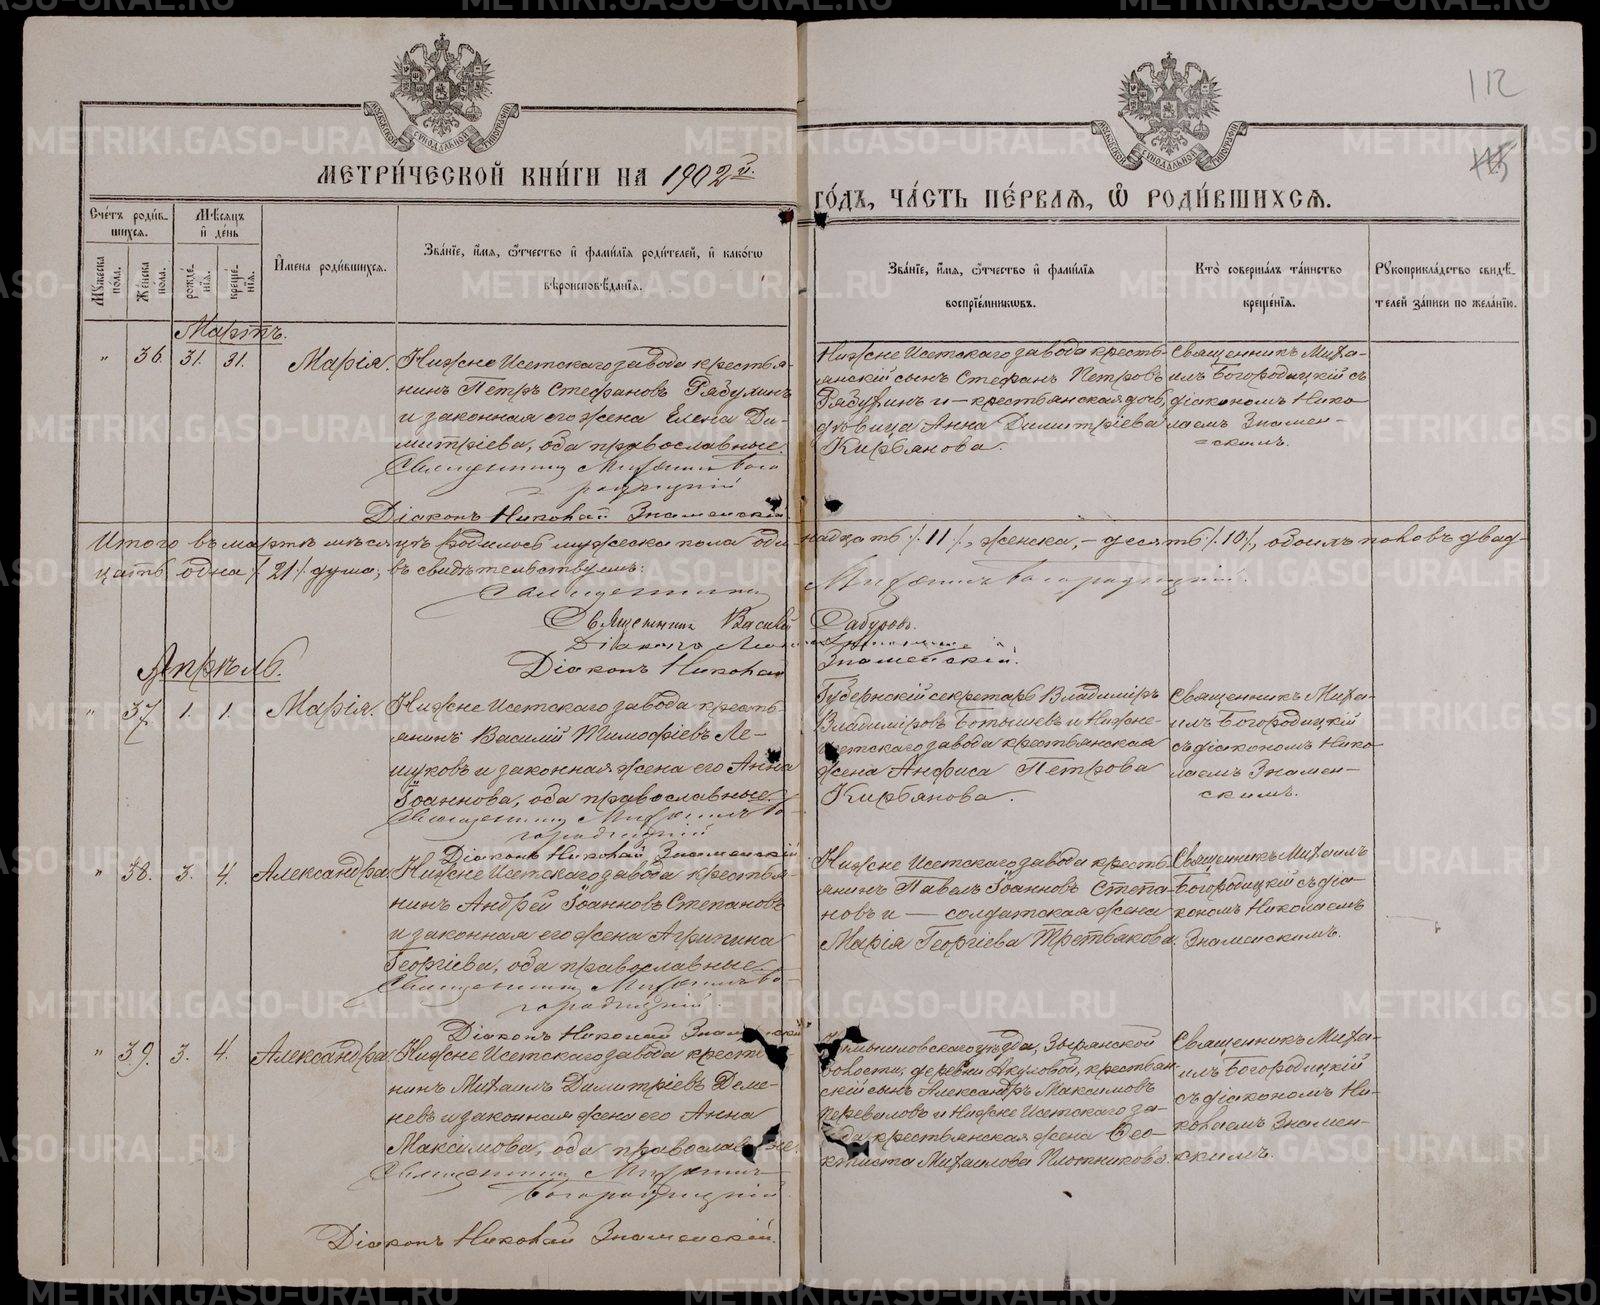 112
115
МЕТРИ́ЧЕСКОЙ КНИ́ГИ НА 1902й.
ГО́ДЪ, ЧА́СТЬ ПЕ́РВАЯ, Ѡ РОДИ́ВШИХСЯ.
Сче́тъ роди́в-
шихся.
Мѣ́сяцъ
и де́нь
Мꙋ́жеска по́ла.
Же́нска по́ла.
рожде́-
нїя.
креще́-
нїя.
И҆мена роди́вшихся.
Зва́нїе, и҆́мя, ѻ҆́тчество и҆ фами́лїя роди́телей, и҆ како́гѡ
вѣроисповѣ́данїя.
Зва́нїе, и҆́мя, ѻ҆́тчество и҆ фами́лїя
воспрїе́мникѡвъ.
Кто̀ соверша́лъ та́инство
креще́нїя.
Рꙋкоприкла́дство свидѣ́-
телей за́писи по жела́нїю.
Мартъ.
" 36. 31. 31. Марія.
Нижне Исетскаго завода крестья-
нинъ Петръ Стефановъ Рябухинъ
и законная его жена Елена Ди-
митріева, оба православные.
Священникъ Михаилъ Бого
родицкій
Діаконъ Николай Знаменскій
Нижне Исетскаго завода кресть-
янскій сынъ Стефанъ Петровъ
Рябухинъ и - крестьянская дочь,
дѣвица Анна Димитріева
Кирьянова.
Священникъ Миха-
илъ Богородицкій съ
діакономъ Нико-
лаемъ Знамен-
скимъ.
Итого въ мартѣ мѣсяцѣ родилось мужеска пола оди-
надцать /11/, женска, - десять /10/, обоихъ половъ двад-
цать одна /21/ душа, въ свидѣтельствуемъ:
Священникъ Михаилъ Богородицкій.
Священникъ Василій
Діаконъ
Діаконъ Николай Знаменскій.
Апрѣль.
" 37. 1. 1. Марія.
Нижне Исетскаго завода кресть-
янинъ Василій Тимофіевъ Ле-
щуковъ и законная жена его Анна
Іоаннова, оба православные.
Священникъ Михаилъ Бо-
городицкій
Діаконъ Николай Знаменскій
Губернскій секретарь Владиміръ
Владиміровъ Ботышевъ и Нижне-
исетскаго завода крестьянская
жена Анфиса Петрова
Кирьянова.
Священникъ Миха-
илъ Богородицкій
съ діакономъ Нико-
лаемъ Знамен-
скимъ.
" 38. 3. 4. Александра
Нижне Исетскаго завода крестья-
нинъ Андрей Іоанновъ Степановъ
и законная его жена Агрипина
Георгіева, оба православные.
Священникъ Михаилъ Бо-
городицкій.
Діаконъ Николай Знаменскій
Нижне Исетскаго завода кресть-
янинъ Павелъ Іоанновъ Степа-
новъ и — солдатская жена
Марія Георгіева Третьякова.
Священникъ Михаилъ
Богородицкій съ діа-
кономъ Николаемъ
Знаменскимъ.
" 39. 3. 4. Александра
Нижне Исетскаго завода крестья-
нинъ Михаилъ Димитріевъ Деме-
невъ и законная жена его Анна
Максимова, оба православные.
Священникъ Михаилъ
Богородицкій
Діаконъ Николай Знаменскій.
уѣзда, Зырянской
волости, деревни Акуловой, крестьян-
скій сынъ Александръ Максимовъ
Переваловъ и Нижне Исетскаго за-
вода крестьянская жена Ѳео-
ктиста Михаилова Плотникова.
Священникъ Миха-
илъ Богородицкій
съ діакономъ Ни-
колаемъ Знамен-
скимъ.
METRIKI.GASO-URAL.RU